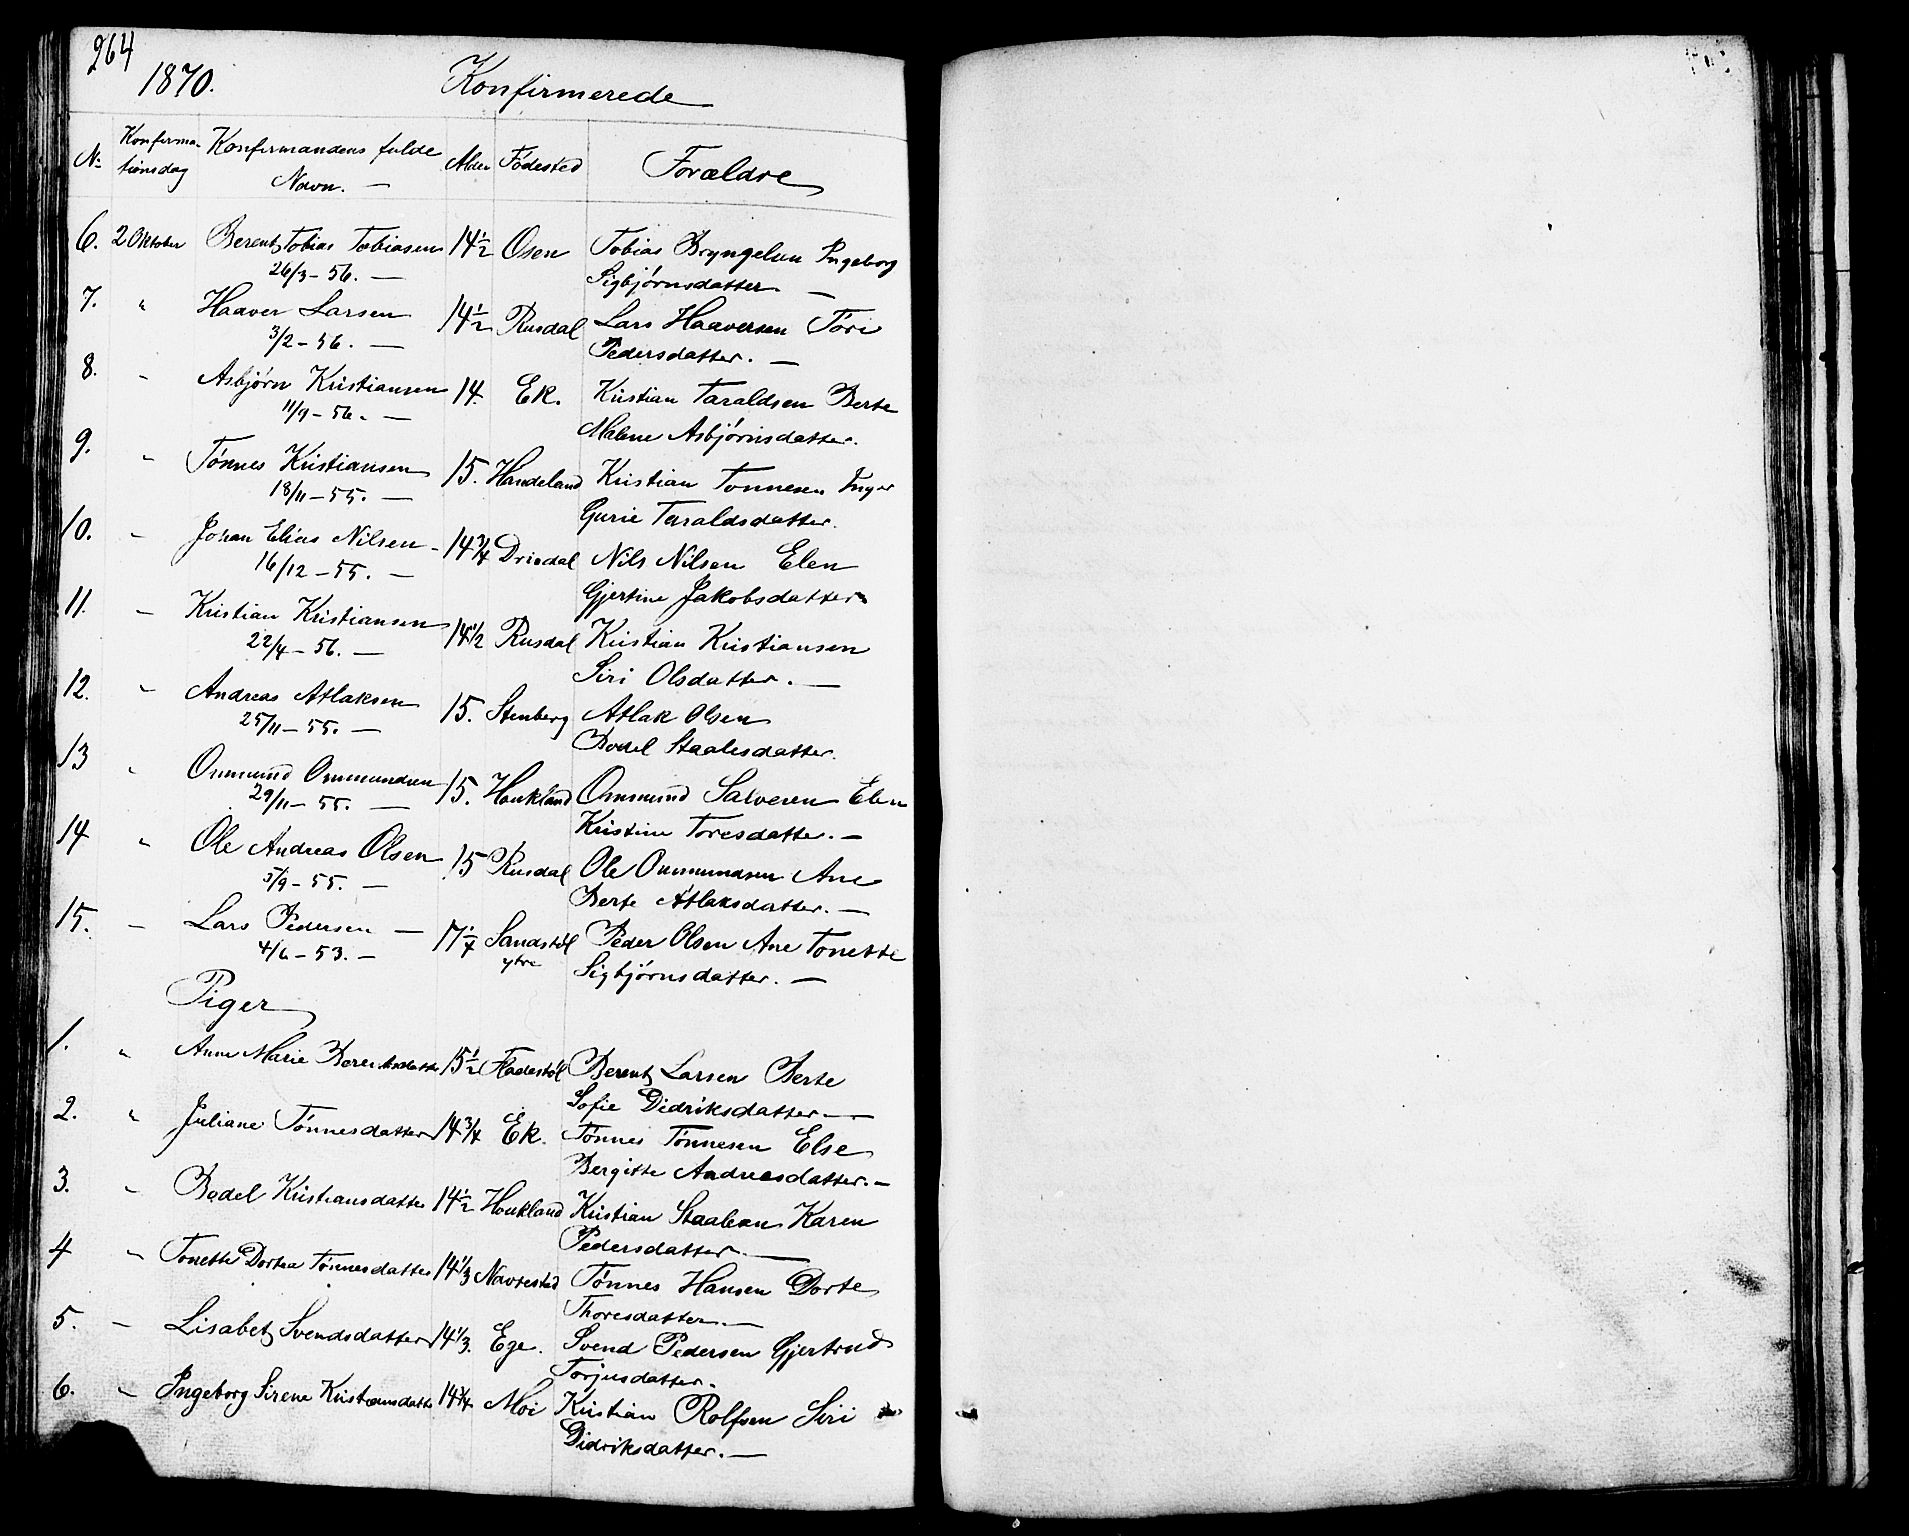 264
1870. Konfirmerede
No Konfirma- Konfirmandens fulde Alder Fødested Forældre
tionsdag Navn. —
6. 2 Oktober Berent Tobias Tobiasen 14 1/2 Osen Tobias Bryngelsen Ingeborg
26/3 – 56. — Sigbjørnsdatter —
7. " Haaver Larsen 14 1/2 Rusdal Lars Haaversen Tori
3/2 – 56. — Pedersdatter. —
8. " Asbjørn Kristiansen 14. Ek. Kristian Taraldsen Berte
11/9 – 56. — Malene Asbjørnsdatter.
9. " Tønnes Kristiansen 15. Handeland Kristian Tønnesen Inger
18/11 – 55. — Gurie Taraldsdatter.
10. " Johan Elias Nilsen – 14 3/4 Drivdal Nils Nilsen Elen
16/12 – 55. — Gjertine Jakobsdatter
11. " Kristian Kristiansen 14 1/2 Rusdal Kristian Kristiansen
22/4 – 56. — Siri Olsdatter. —
12. " Andreas Atlaksen 15. Stenberg Atlak Olsen
25/11 – 55. — Bodel Staalesdatter.
13 " Ommund Ommundsen 15. Haukland Ommund Salvesen Elen
29/11 – 55. — Kristine Toresdatter. —
14 " Ole Andreas Olsen 15 Rusdal Ole Ommundsen Ane
5/9 – 55. — Berte Atlaksdatter. —
15. " Lars Pedersen — 17 1/4 Sandstøl Peder Olsen Ane Tonette
4/6 – 53. — ytre Sigbjørnsdatter. —
Piger
1. " Anne Marie Berentsdatter 15 1/2 Fladestøl Berent Larsen Berte
Sofie Didriksdatter —
2. " Juliane Tønnesdatter 14 3/4 Ek. Tønnes Tønnesen Else
Bergitte Andreasdatter. —
3. " Bodel Kristiansdatter 14 1/2 Haukland Kristian Staalesen Karen
Pedersdatter. —
4 " Tonette Dortea Tønnesdatter 14 1/3 Navrestad Tønnes Hansen Dorte
Thoresdatter. —
5. " Lisabet Svendsdatter 14 1/3. Ege. Svend Pedersen Gjertrud
Torjusdatter.
6. " Ingeborg Sirene Kristiansdatter 14 3/4 Moi Kristian Rolfsen Siri
Didriksdatter. —